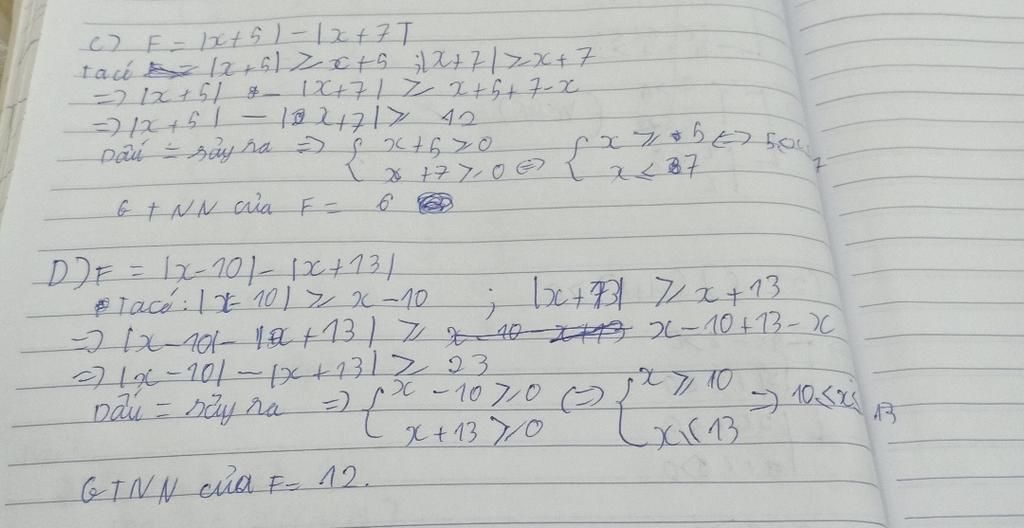 c) F = |x+5| - |x+7|
ta có |x+5| ≥ x+5 ; |x+7| ≥ x+7
=> |x+5| - |x+7| ≥ x+5+7-x
=> |x+5| - |x+7| ≥ 12
Dấu = xảy ra => { x+5 ≥ 0 x+7 ≥ 0 <=> { x ≥ 5 x ≤ 7 <=> 5 ≤ x ≤ 7
GTNN của F = 6
D) F = |x-10| - |x+13|
Ta có: |x-10| ≥ x-10 ; |x+13| ≥ x+13
=> |x-10| - |x+13| ≥ x-10+13-x
=> |x-10| - |x+13| ≥ 23
Dấu = xảy ra => { x-10 ≥ 0 x+13 ≥ 0 <=> { x ≥ 10 x ≤ 13 => 10 ≤ x ≤ 13
GTNN của F = 12.